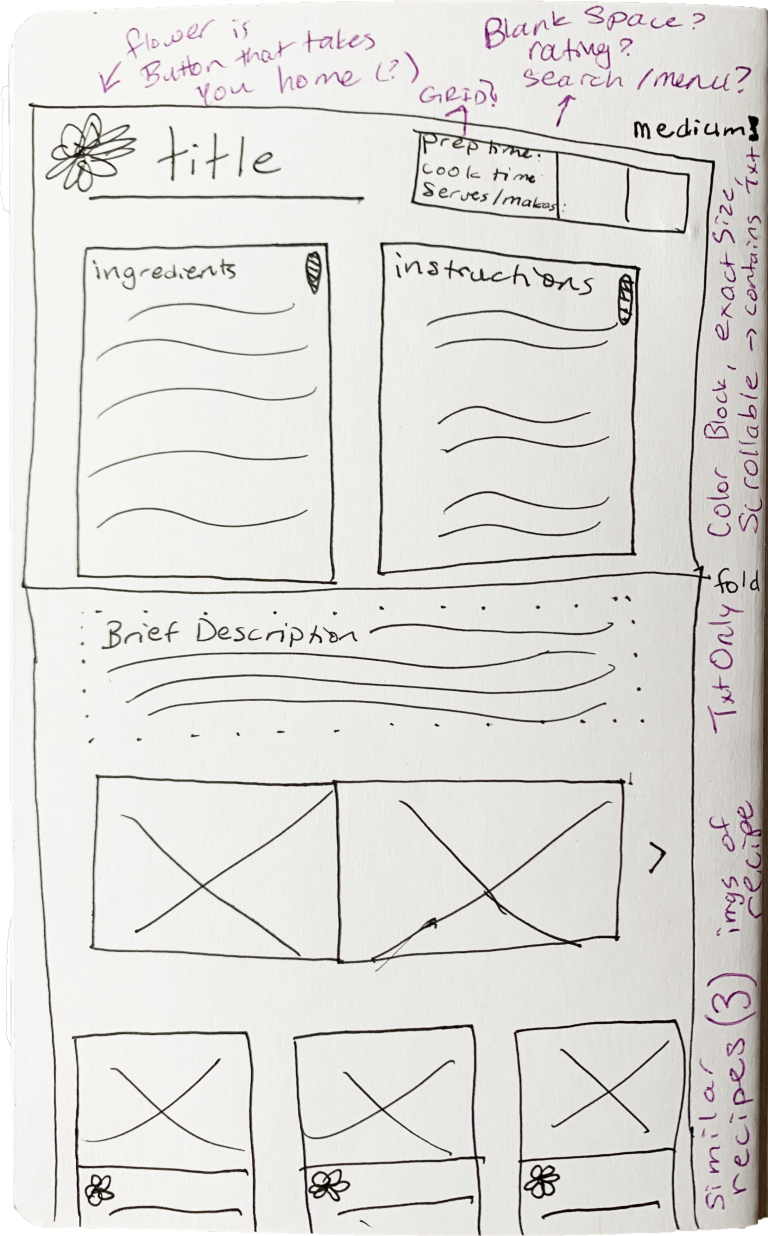 flower is
Button that takes
you home (?)
Blank Space?
rating?
search/menu?
GRID?
medium:
title
prep time:
cook time
Serves/makes:
ingredients
instructions
Color Block, exact size,
Scrollable → contains Txt
fold
Brief Description
Txt Only
>
imgs of
recipe
similar
recipes (3)